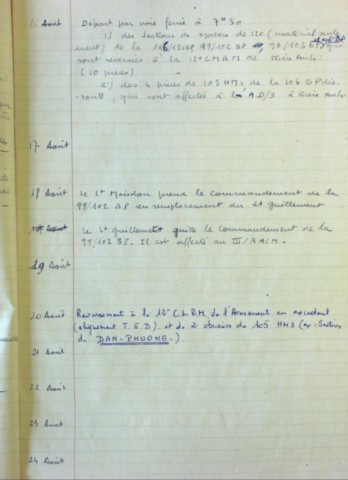 15 Août Départ par voie ferrée à 7H30
1) des sections de mortiers de 120 (matériel seule
ment) de la
sont reversées à la 12° CMAM de
(10 pièces)
2) des 4 pièces de 105 HM2 de la 106 BP dis-
soute, qui sont affectés à AD/3 à
17 Août
18 Août Le Lt prend le commandement de la
99/102 BP en remplacement du Lt Guillement
Le Lt Guillement quitte le commandement de la
99/102 BP. Il est affecté au III/RACM.
19 Août
20 Août Reversement à la 12° C.L.R.M. de l'Armement en excédent
(alignement T.E.D.) et de 2 obusiers de 105 HM3 (ex-Section
de DAN-PHUONG.)
21 Août
22 Août
23 Août
24 Août